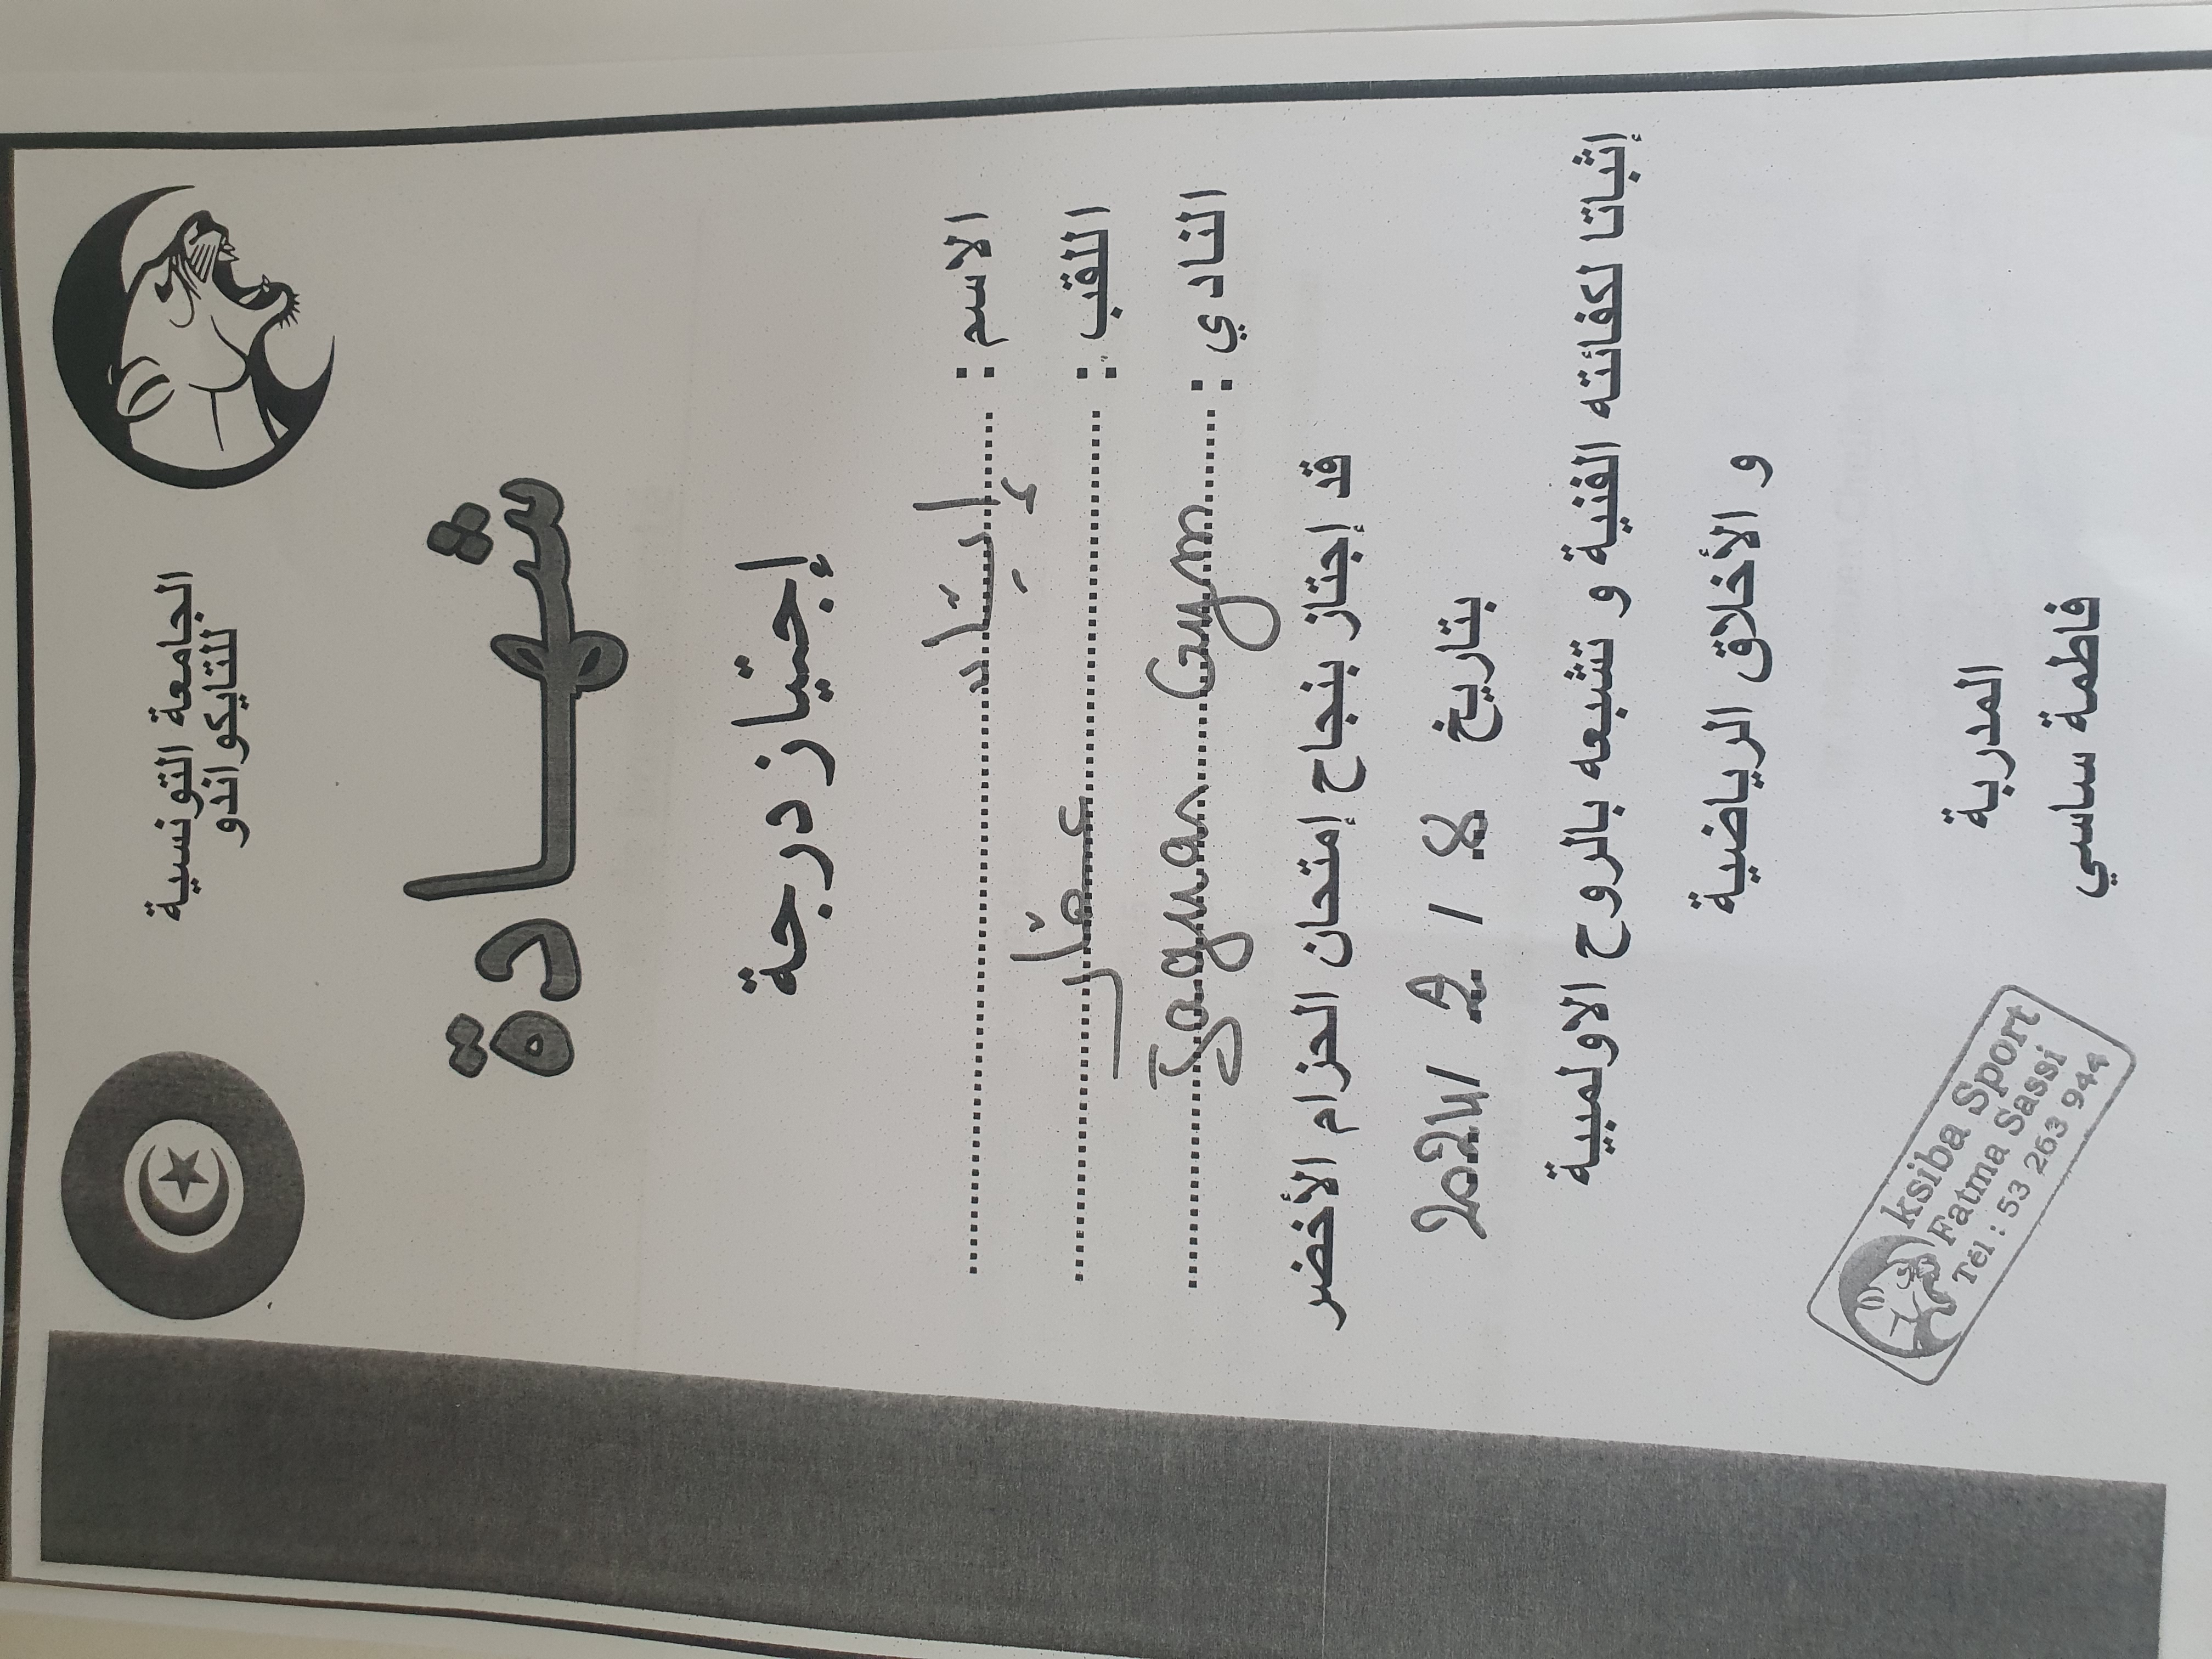 الجامعة التونسية
للتايكواندو
شهادة
إجتياز درجة
الاسم : إياد
اللقب :
النادي : Jaguar Gym
قد إجتاز بنجاح إمتحان الحزام الأخضر
بتاريخ 8 / 2 / 2024
إثباتا لكفائته الفنية و تشبعه بالروح الاولمبية
و الأخلاق الرياضية
المدربة
فاطمة ساسي
ksiba Sport
Fatma Sassi
Tél : 53 263 944